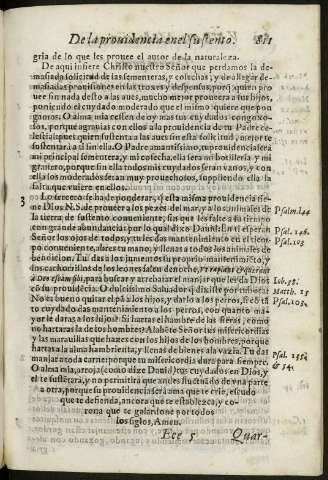 De la prouidencia en el sustento. 811
gria de lo que les prouee el autor de la naturaleza.
De aqui infiere Christo nuestro Señor que perdamos la de-
masiada solicitud de las sementeras, y cosechas, y de allegar de-
masiadas prouisiones en las troxes y despensas, porq̃ quien pro
uee sin nada desto a las aues, mucho mejor proueera a sus hijos,
poniendo el cuydado moderado que el mismo quiere que pon
gamos. O alma mia cessen de oy mas tus cuydados congoxo-
sos, porque agrauias con ellos a la prouidencia de tu Padre ce-
lestial, que quien sustenta a las aues sin esta solicitud, mejor te
sustentarà a ti sin ella. O Padre amantissimo, tu prouidencia sera
mi principal sementera, y mi cosecha, ella sera mi botilleria y mi
granero, porque sin ella todos mis cuydados seran vanos, y con
ella los moderados seran muy prouechosos, supliendo ella la
falta que vuiere en ellos.
3 Lo tercero se ha de ponderar, q̃ esta misma prouidencia tie-
ne Dios N.S. de proueer a los pezes del mar, y a los animales de
la tierra de sustento conueniente, sin que les falte a su tiempo
con grande abundancia por lo qual dize Dauid: En ti esperan
Señor los ojos de todos, y tu les das mantenimiento en el tiem
po conueniente, abres tu mano, y llenas a todos los animales de
bendicion. Tu das a los jumentos su proprio mantenimiento, y
los cachorrillos de los leones salen de noche, y
a Dios para buscar y arrebatar el manjar que les da Dios
cõ su prouidencia. O dulcissimo Saluador q̃ dixiste por tu boca:
No es bueno quitar el pã a los hijos, y darlo a los perros, si cõ tã
to cuydado das mantenimiento a los perros, con quanto ma-
yor le daras a los hijos? Si hartas el hambre de las fieras, como
no hartaras la de los hombres? Alabẽte Señor tus misericordias
y las marauillas que hazes con los hijos de los hombres, porque
hartas la alma hambrienta, y llenas de bienes ala vazia. Tu das
manjar a toda carne, porque tu misericordia dura para siempre.
O alma mia, arroja (como dize Dauid) tus cuydados en Dios, y
el te sustẽtara, y no permitira que andes fluctuãdo de vna parte
a otra, porque su prouidencia sera ama que te crie, escudo
que te defienda, ancora que te establezca, y co-
rona que te galardone por todos
los siglos, Amen.
Eee 5 Quar-
Psalm. 144
Psal. 146.
Psal. 103
Iob. 38.
Matth. 15
Psal. 103.
Psal. 135.
& 54.